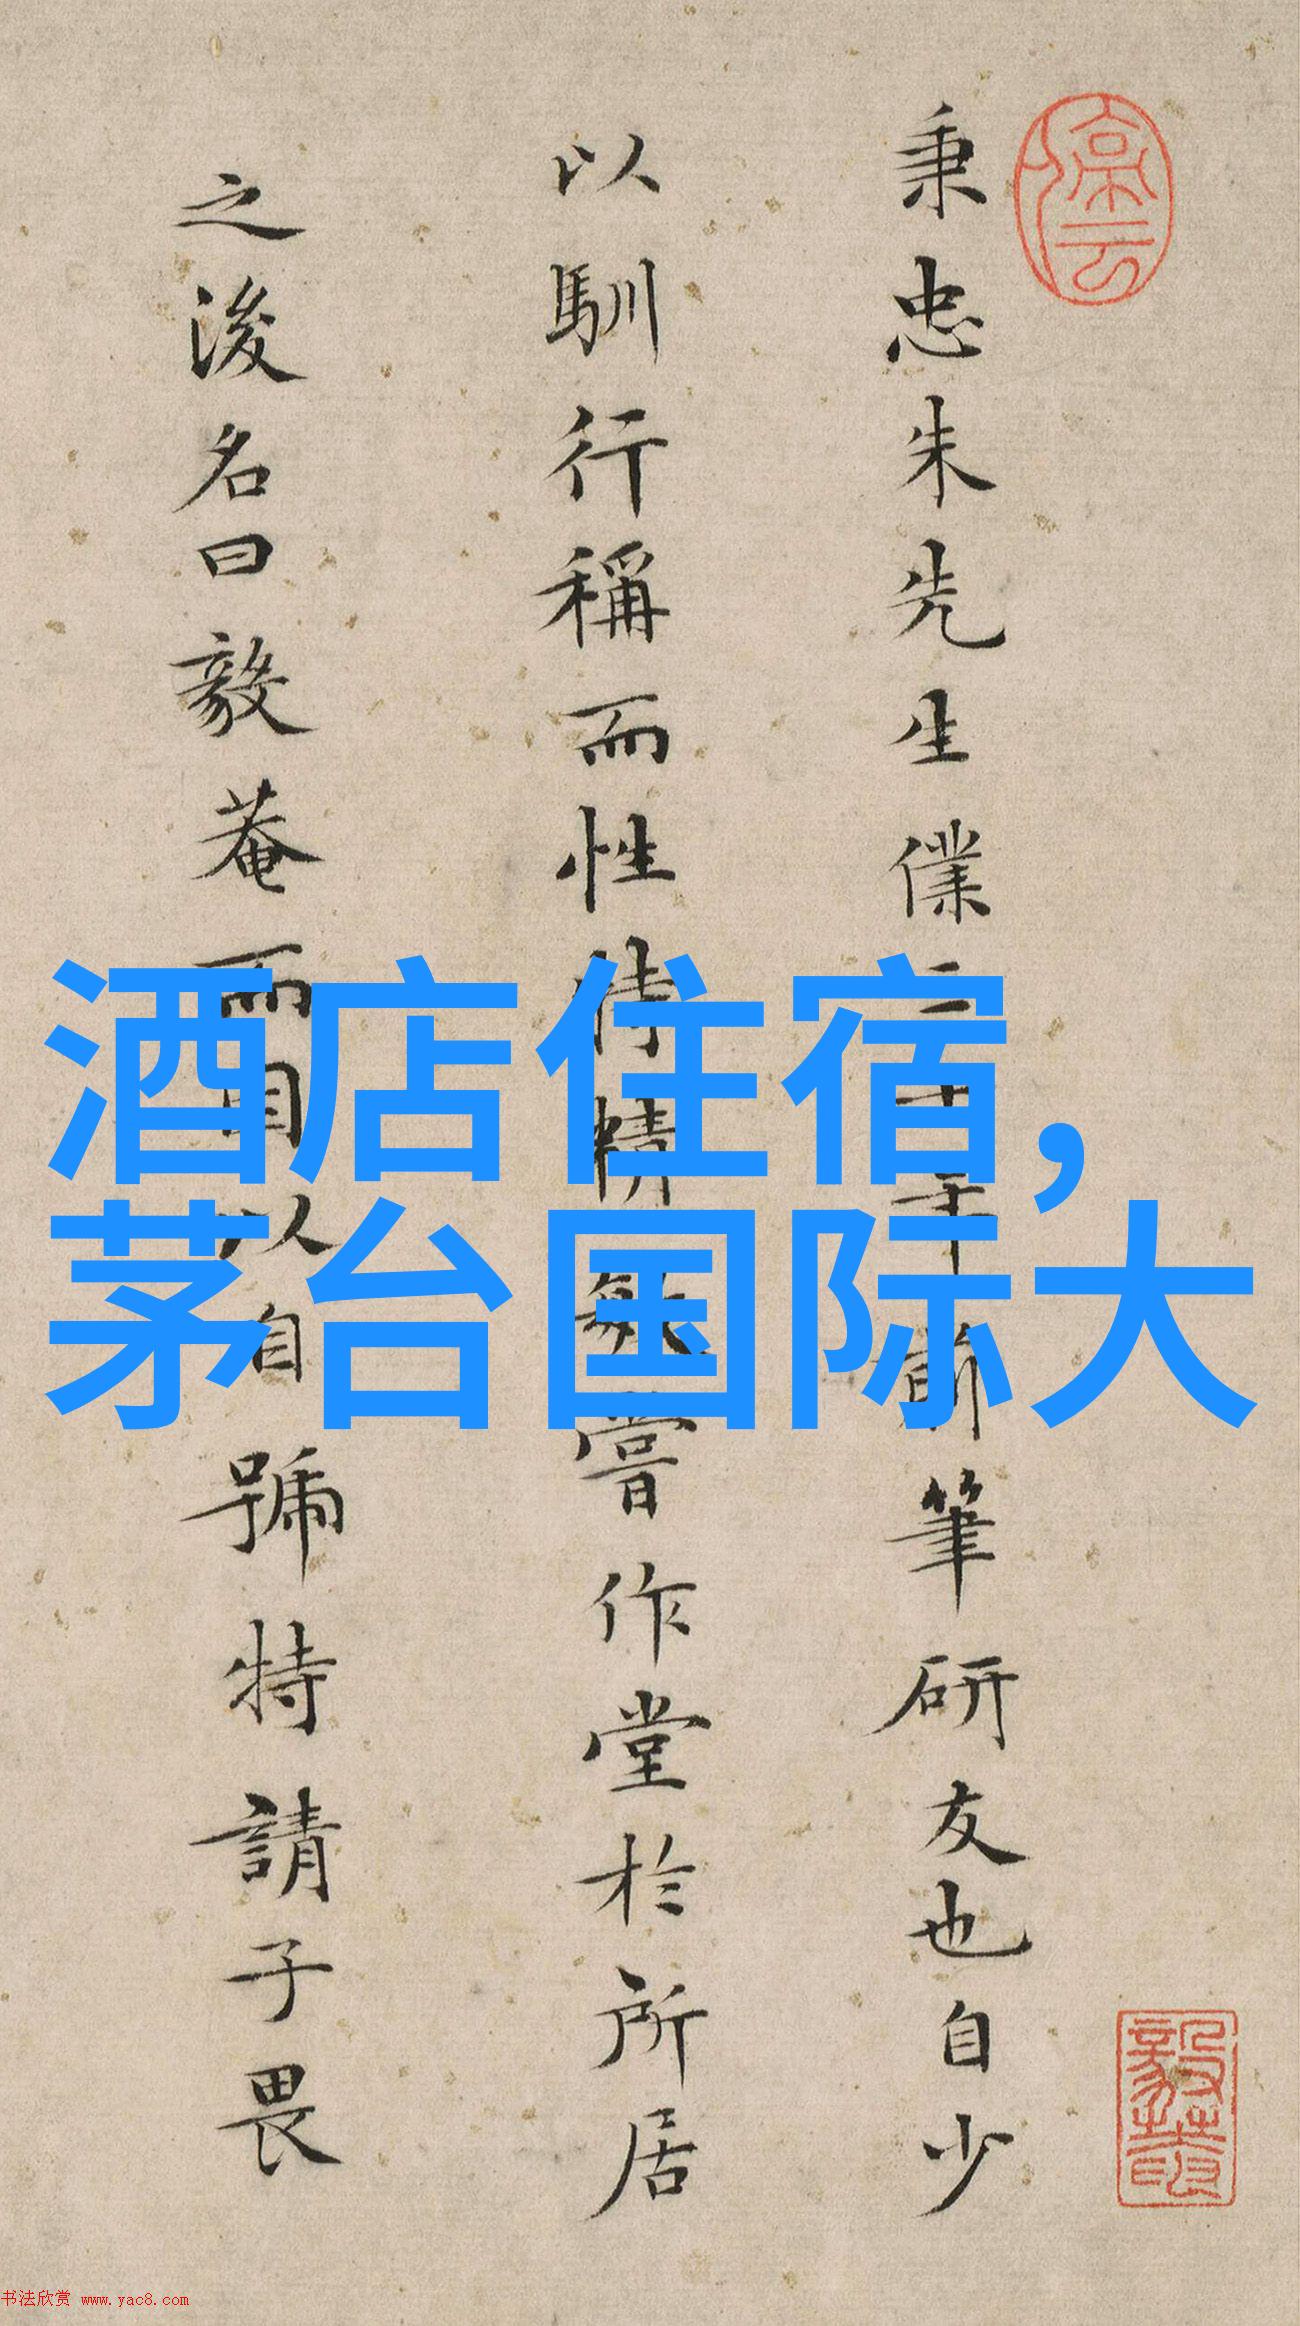 秉忠朱先生僕二十年前筆研友也自少
以馴行稱而性特精敏嘗作堂於所居
之後名曰毅菴而因以自號特請子畏
酒店住宿，
茅台国际大
书法欣赏 www.yac8.com